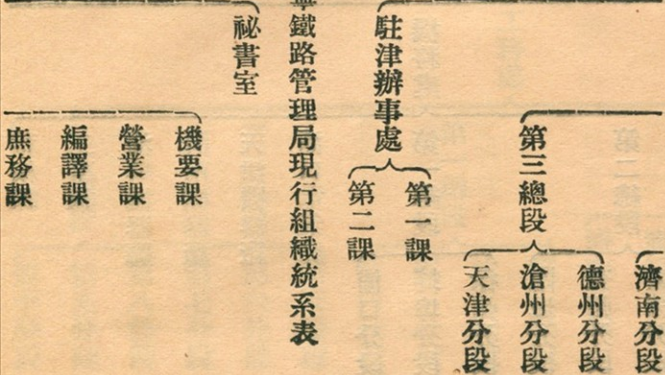 濟南分段
德州分段
第三總段
滄州分段
天津分段
駐津辦事處
第一課
第二課
鐵路管理局現行組織統系表
祕書室
機要課
營業課
編譯課
庶務課